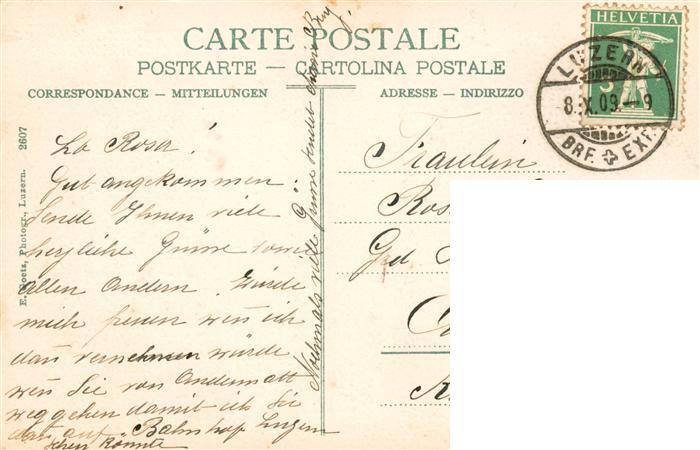 CARTE POSTALE
POSTKARTE — CARTOLINA POSTALE
CORRESPONDANCE — MITTEILUNGEN
ADRESSE — INDIRIZZO
HELVETIA
5
LUZERN
8.X.09.—9
BRF. EXP.
E. Goetz, Photogr., Luzern. 2607
La Rosa!
Gut angekommen:
Sende Ihnen viele
herzliche Grüsse sowie
allen Andern. Würde
mich freuen wen ich
dan vernehmen würde
wen Sie von Andermatt
weggehen damit ich Sie
dan auf Bahnhof Luzern
sehen könnte
Nochmals viele Grüsse sendet
Fräulein
Ros